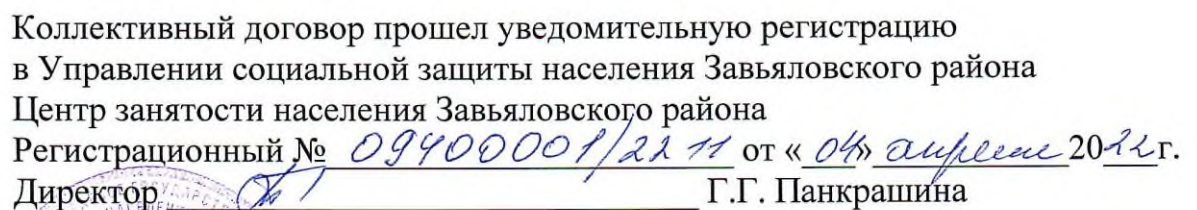 Коллективный договор прошел уведомительную регистрацию
в Управлении социальной защиты населения Завьяловского района
Центр занятости населения Завьяловского района
Регистрационный № 09400001/2211 от «04» апреля 2022г.
Директор Г.Г. Панкрашина